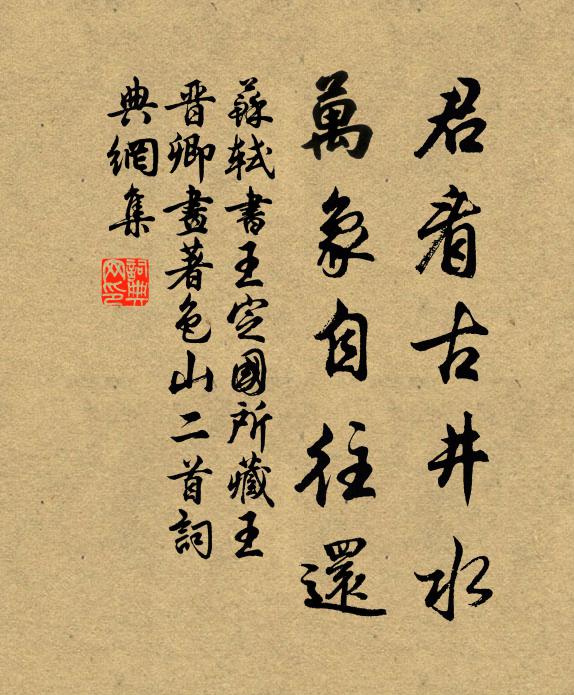 君看古井水
萬象自往還
蘇軾書王定國所藏王
晋卿畫著色山二首詞
典網集
詞典
网印